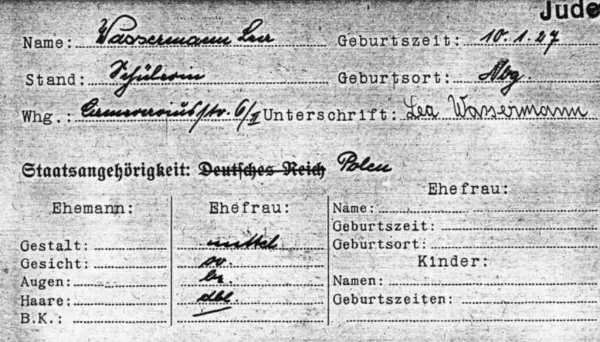 Jude
Name: Wassermann Lea Geburtszeit: 10.1.27
Stand: Schülerin Geburtsort: Nbg.
Whg.: 6/II Unterschrift: Lea Wassermann
Staatsangehörigkeit: Deutsches Reich Polen
Ehemann: Ehefrau: Ehefrau:
Name:
Geburtszeit:
Gestalt: mittel Geburtsort:
Gesicht: ov. Kinder:
Augen: br Namen:
Haare: dbl Geburtszeiten:
B.K.: